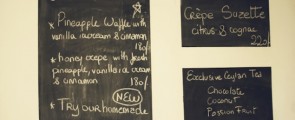 * Pineapple Waffle with
vanilla icecream & cinnamon
180/-
* honey crepe with fresh
pineapple, vanilla ice cream
& cinnamon
180/-
NEW
* Try our homemade
Crêpe Suzette
citrus & cognac
220/-
Exclusive Ceylon Tea
Chocolate
Coconut
Passion Fruit